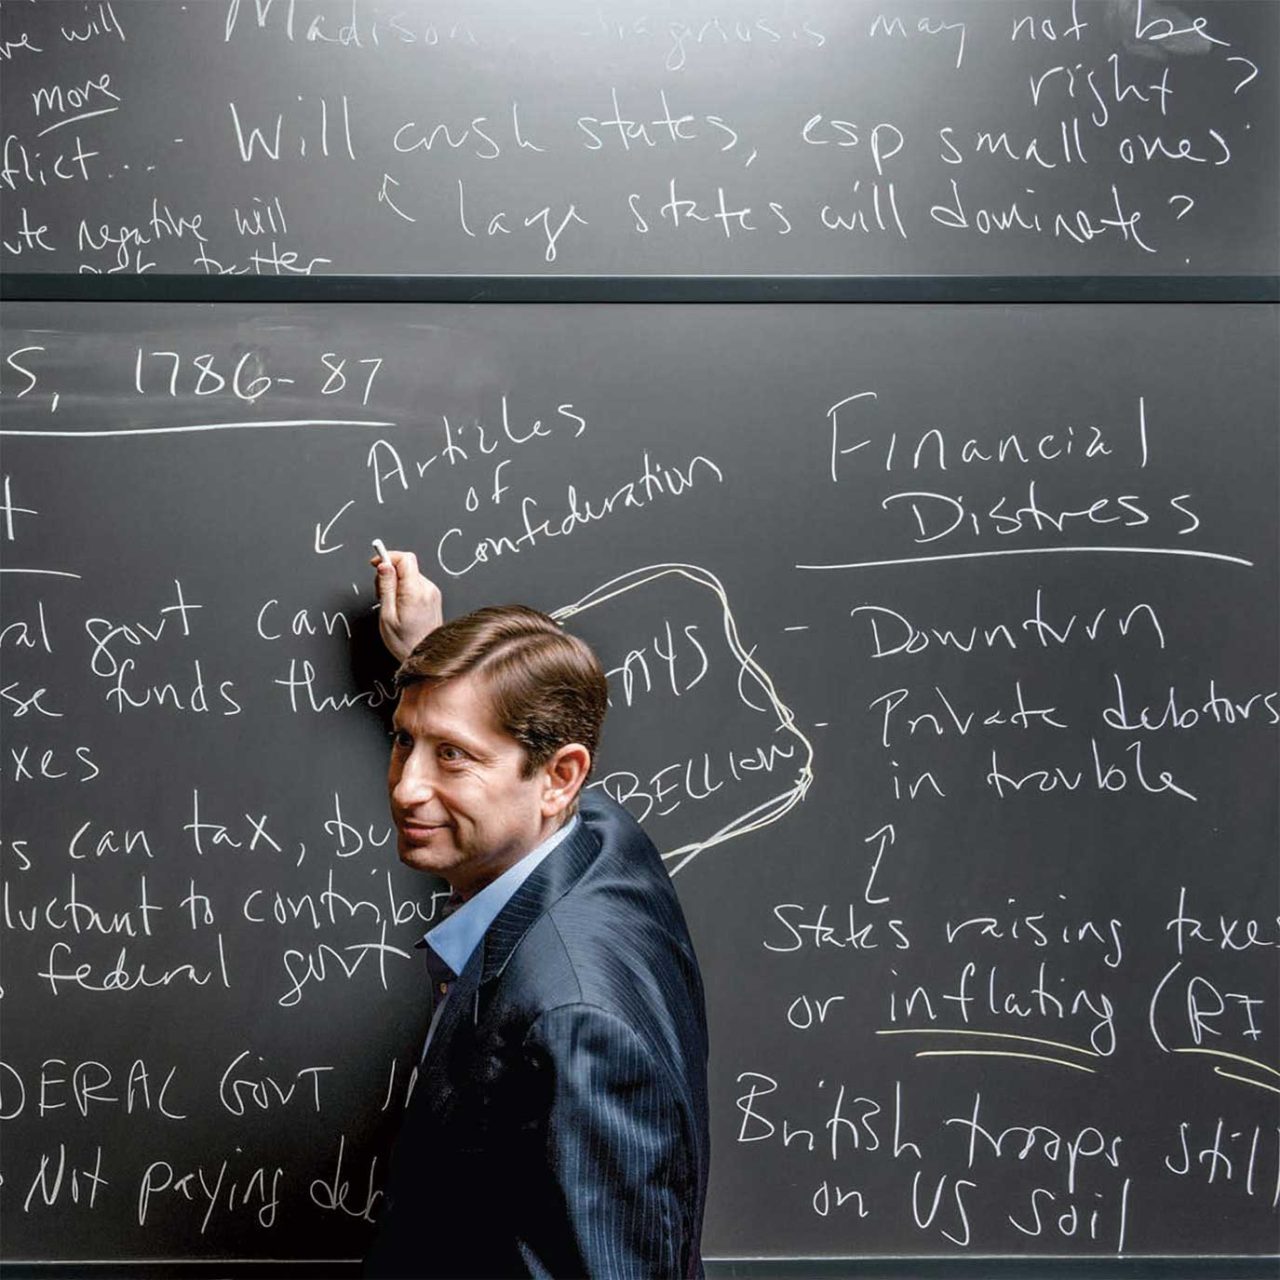 ve will
more
flict...
ute negative will
not better
Madison diagnosis may not be
right?
- Will crush states, esp small ones
large states will dominate?
S, 1786-87
Articles
of
Confederation
t
al govt can'
se funds thro
xes
s can tax, bu
luctant to contribu
federal govt
DERAL GOVT I
Not paying deb
AYS
BELLION
Financial
Distress
- Downturn
- Private debtors
in trouble
States raising taxe
or inflating (RI
British troops still
on US soil